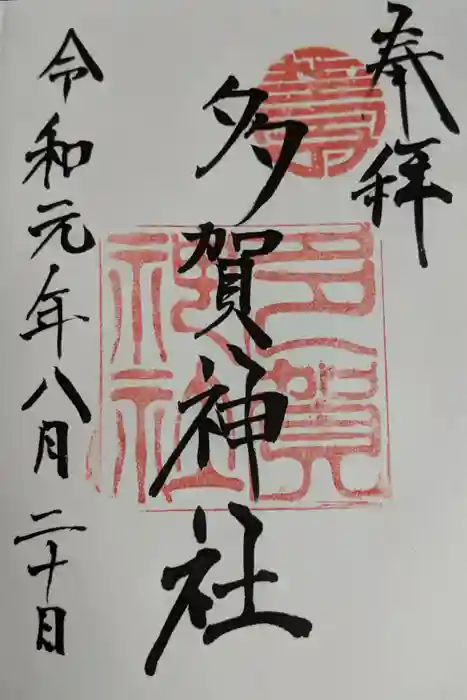 奉拝
壽
多賀神社
多賀神社
令和元年八月二十日